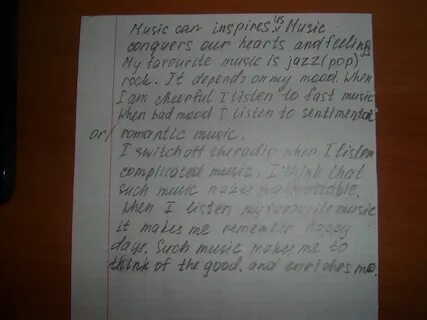 Music can inspires us. Music
conquers our hearts and feelings
My favourite music is jazz (pop)
rock. It depends on my mood. When
I am cheerful I listen to fast music
When bad mood I listen to sentimental
or/ romantic music.
I switch off the radio when I listen
complicated music. I think that
such music makes me
When I listen my favourite music
it makes me remember happy
days. Such music makes me to
think of the good. and enriches me.